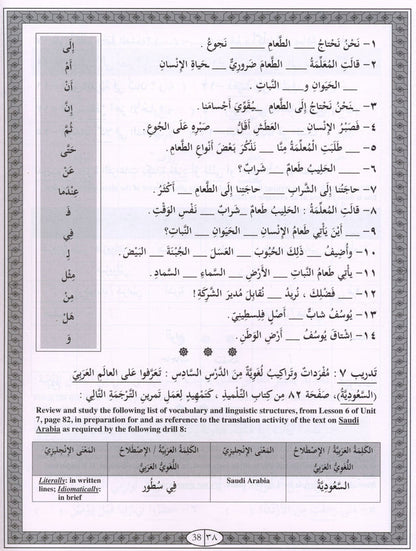 ١- نَحْنُ نَحْتاجُ ___ الطَّعامِ ___ نَجوعُ .
٢- قالَتِ المُعَلِّمَةُ ___ الطَّعامَ ضَرورِيٌّ ___ حَياةِ الإِنْسانِ
___ الحَيَوانِ و___ النَّباتِ .
٣- ___نَحْنُ نَحْتاجُ إِلَى الطَّعامِ ___يُقَوِّيَ أَجْسامَنا .
٤- فَصَبْرُ الإِنْسانِ ___ العَطَشِ أَقَلُّ ___ صَبْرِهِ عَلَى الجُوعِ .
٥- طَلَبَتِ المُعَلِّمَةُ مِنّا ___ نَذْكُرَ بَعْضَ أَنْواعِ الطَّعامِ .
٦- ___ الحَليبُ طَعامٌ ___ شَرابٌ؟
٧- حاجَتُنا إِلَى الشَّرابِ ___ حاجَتِنا إِلَى الطَّعامِ ___ أَكْثَرُ .
٨- قالَتِ المُعَلِّمَةُ : الحَليبُ طَعامٌ ___شَرابٌ ___ نَفْسِ الوَقْتِ .
٩- ___ أَيْنَ يَأْتي طَعامُ الإِنْسانِ ___ الحَيَوانِ ___ النَّباتِ؟
١٠- وأُضيفُ ___ ذَلِكَ الحُبوبَ ___ العَسَلَ ___ الجُبْنَةَ ___ البَيْضَ .
١١- يَأْتي طَعامُ النَّباتِ ___ الأَرْضِ ___ السَّماءِ ___ السَّمادِ .
١٢- ___ فَضْلِكَ ، نُريدُ ___ نُقابِلَ مُديرَ الشَّرِكَةِ!
١٣- يُوسُفُ شابٌّ ___ أَصْلٍ فِلِسْطينِيٍّ .
١٤- اِشْتاقَ يُوسُفُ ___ أَرْضِ الوَطَنِ .
إِلَى
أَمْ
أَنْ
إِنَّ
ثُمَّ
حَتَّى
عَنْ
عِنْدَما
فَـ
فِي
لِـ
مِثْل
مِنْ
هَلْ
وَ
تَدريب ٧ : مُفْرَدات وتَراكيب لُغَوِيَّة مِنَ الدَّرْسِ السّادِسِ : تَعَرَّفوا عَلى العالَمِ العَرَبِيِّ
(السَّعودِيَّة)، صَفْحَة ٨٢ مِن كِتابِ التِّلْميذِ ، كَتَمْهيدٍ لِعَمَلِ تَمرينِ التَّرْجَمَةِ التّالي :
Review and study the following list of vocabulary and linguistic structures, from Lesson 6 of Unit
7, page 82, in preparation for and as reference to the translation activity of the text on Saudi
Arabia as required by the following drill 8:
الكَلِمَةُ العَرَبِيَّةُ / الإِصْطِلاحُ اللُّغَوِيُّ العَرَبِيُّ
المَعْنَى الإِنْجليزِيّ
الكَلِمَةُ العَرَبِيَّةُ / الإِصْطِلاحُ اللُّغَوِيُّ العَرَبِيُّ
المَعْنَى الإِنْجليزِيّ
السَّعودِيَّةُ
Saudi Arabia
فِي سُطُور
Literally: in written
lines; Idiomatically:
in brief
38 ٣٨